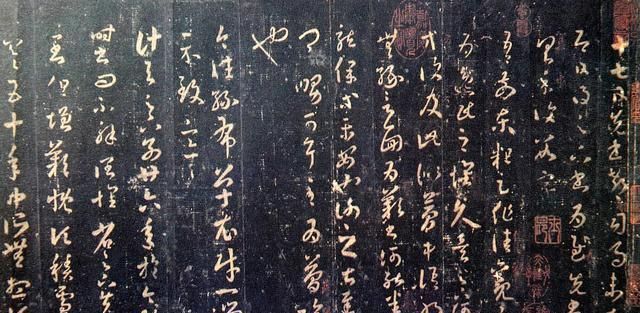 十七日先書郗司馬未
即日得足下書為慰先書
以具示復數字
吾前東粗足作佳觀
吾為逸民之懷久矣足
等復及此似夢中語
無緣言面為歎書何能悉
龍保等平安也謝之甚遲
卿舅可耳至為簡隔
也
今往絲布單衣財一端
示致意
計與足下別廿六年於今
時書問不解闊懷省足下先
書但增歎慨頃積雪
寒五十年中所無想